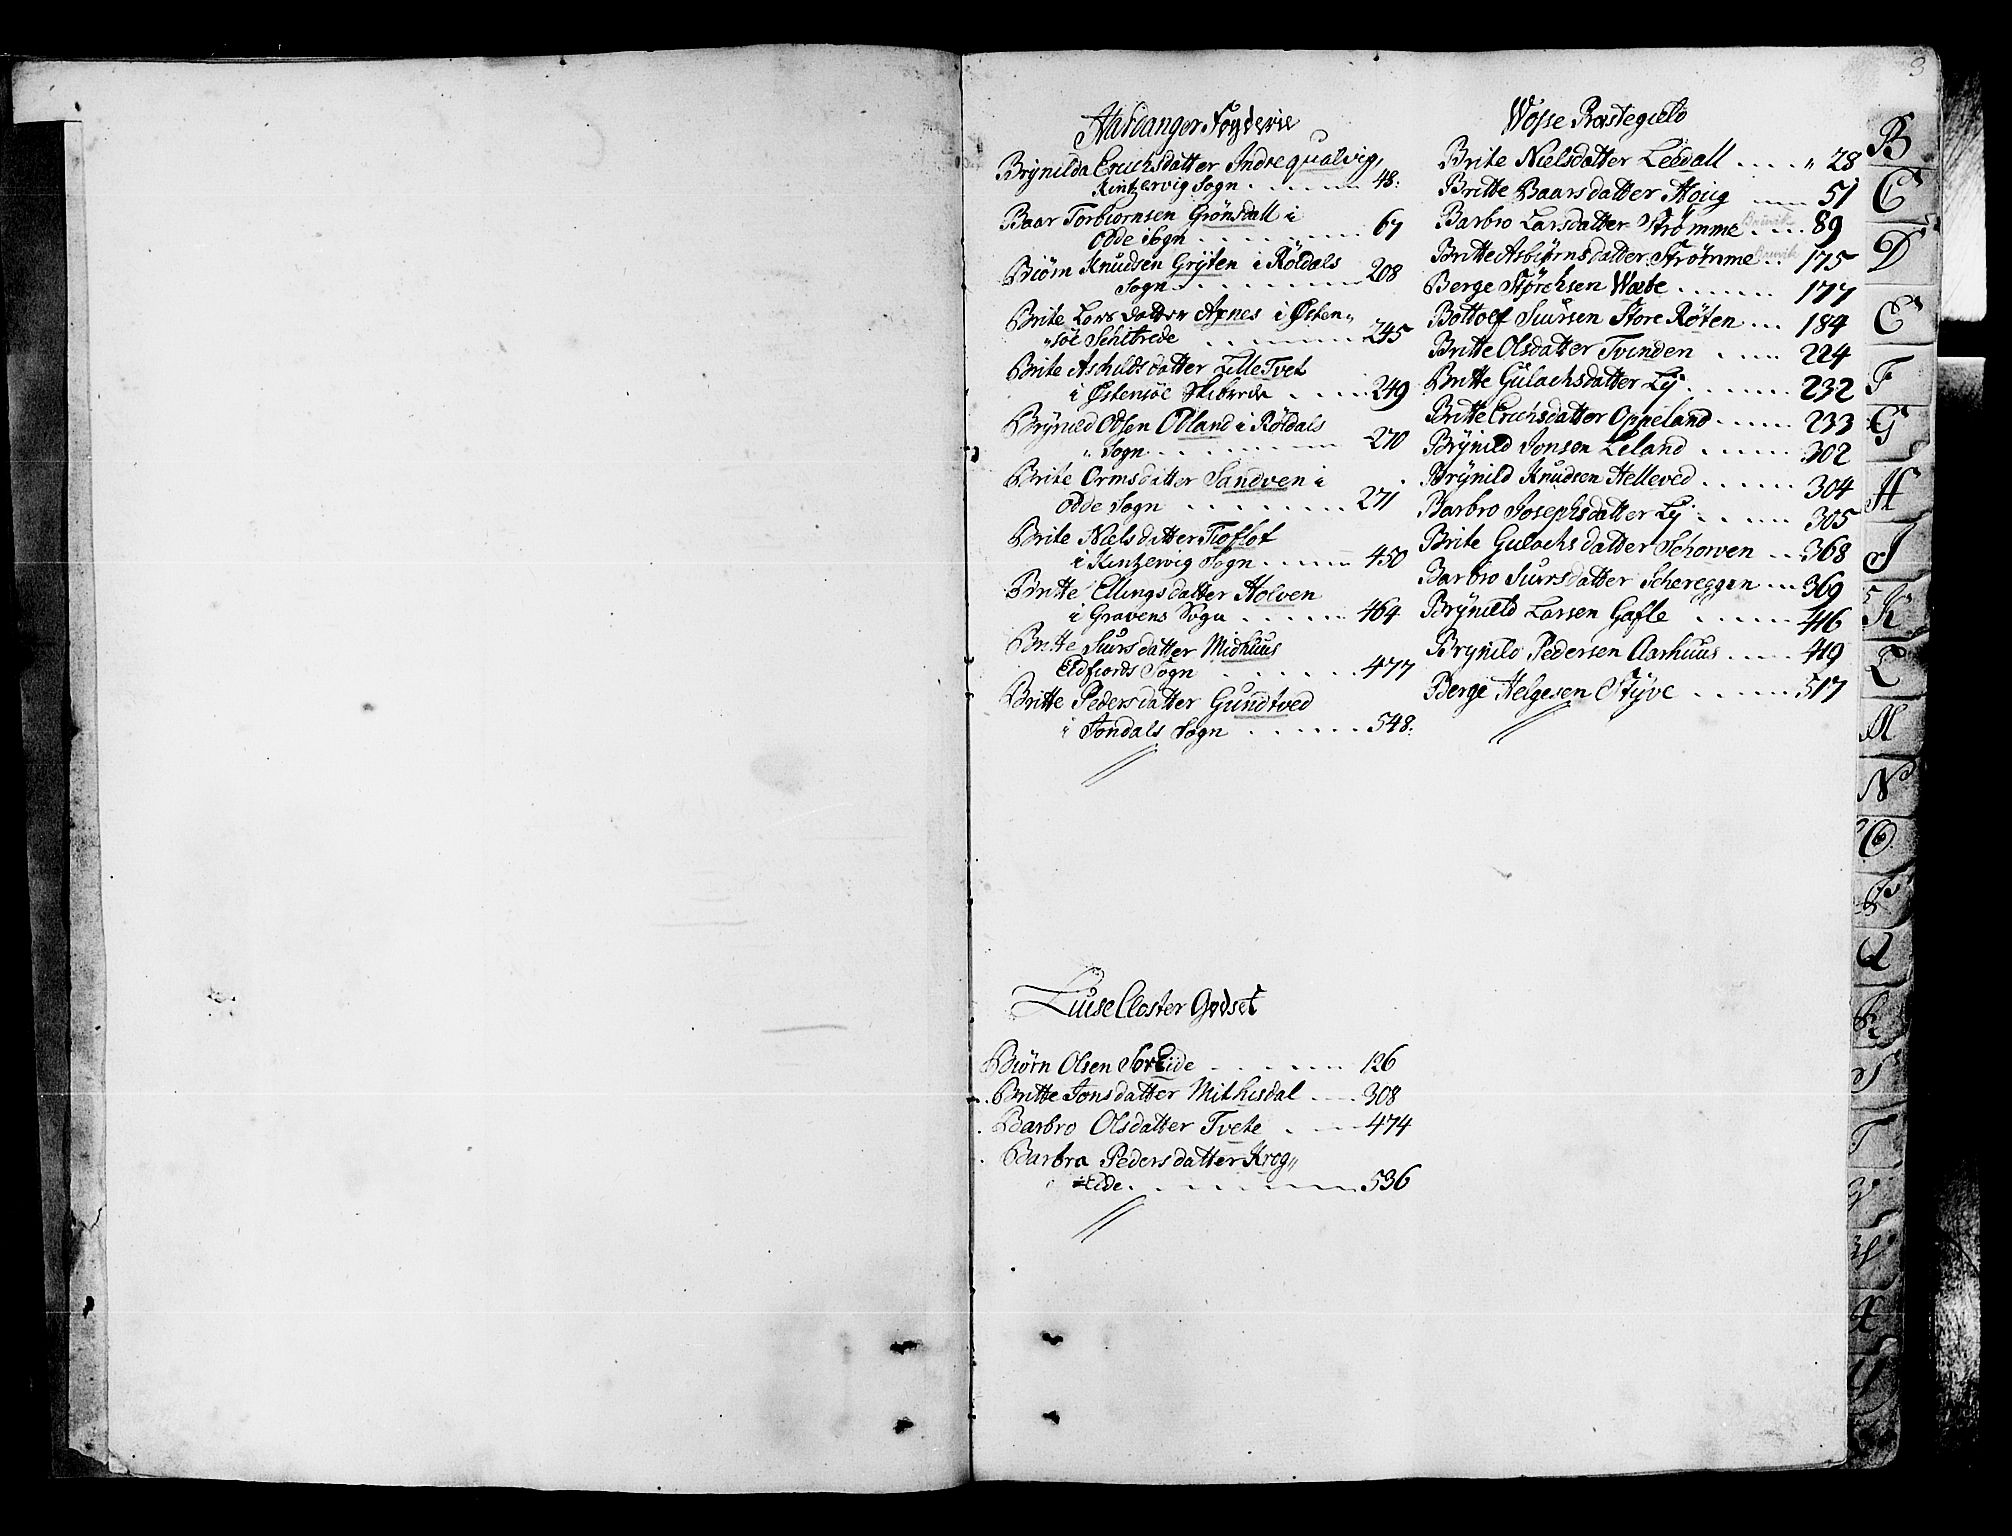 3
Hardanger Fogderie
Brynilda Erichsdatter Indrequalvig,
Kintzervig Sogn . . . . . . . 48:
Baar Torbiornsen Grönsdall i
Odde Sogn . . . . . . . . 67
Biørn Knudsen Grÿten i Röldals
Sogn . . . . . . . . 208
Brite Lars datter Axnes i Østen„
„söe Schibrede . . . . . . . 245
Brite Ashilds datter Lille Tvet
i Østensöe Skibrede . . . . . 249
Brÿnild Olsen Odland i Röldals
„ Sogn . . . . . . . . 270
Brite Ormsdatter Sandven i
Odde Sogn . . . . . . . . 271
Brite Niels datter Tioflot
i Kintzervig Sogn . . . . . . 450
Britte Ellingsdatter Holven
i Gravens Sogn . . . . . . 464
Britte Siursdatter Midhuus
Eidfiords Sogn . . . . . . 477
Britte Pedersdatter Gundtved
i Jondals Sogn . . . . . . 548:
Wosse Præstegield
Brite Nielsdatter Leidall . . . . „ 28
Britte Baarsdatter Houg . . . . 51
Barbro Larsdatter Strømme . . . . 89
Britte Asbiørnsdatter Strømme . . 175
Berge Størchsen Wæte . . . . . . 177
Bottolf Siursen Store Röten . . . 184
Britte Olsdatter Tvinden . . . . 224
Britte Gülachsdatter Lÿ . . . . . . 232
Britte Erichsdatter Oppeland . . . . . 233
Brÿnild Jonsen Leland . . . . . . 302
Brÿnild Knudsen Helleved . . . . . . 304
Barbro Josephsdatter Lÿ . . . . . 305
Brite Gulachs datter Schorven . . . 368
Barbro Siursdatter Schereggen . . . 369
Brÿnild Larsen Gafle . . . . . . 416
Brynild Pedersen Aarhuus . . . . 419
Berge Helgesen Stÿve . . . . . . 517
Luise Closter Godset
Biörn Olsen Soreide . . . . . . 126
Britte Jonsdatter Mithisdal . . . . 308
Barbro Olsdatter Tvete . . . . 474
Barbra Pedersdatter Krog„
„Eide . . . . . . . . . 536
B
C
D
E
F
G
H
J
K
L
M
N
O
P
Q
R
S
T
V
W
X
Y